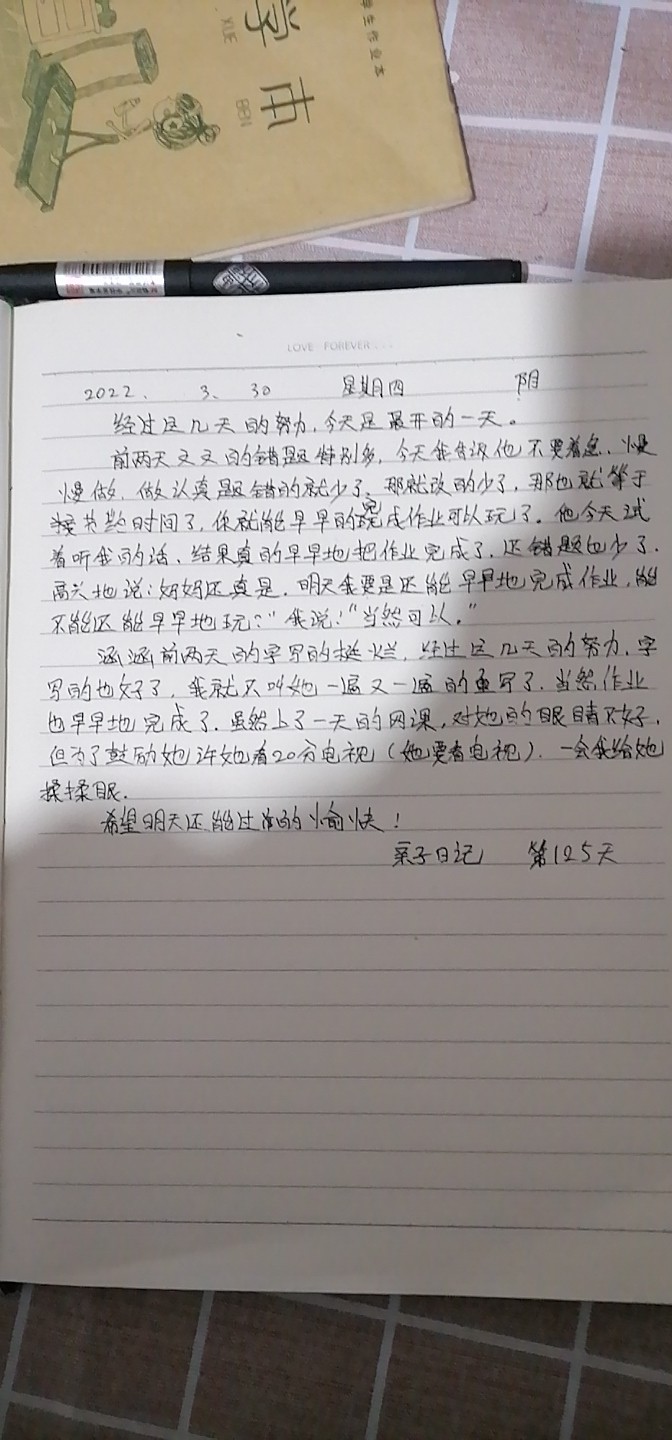 学生作业本
学 本
XUE BEN
LOVE FOREVER...
2022、 3、 30 星期四 阴
经过这几天的努力,今天是最开的一天。
前两天文文的错题特别多,今天我告诉他不要着急,慢
慢做,做认真题错的就少了,那就改的少了,那也就等于
接节约时间了,你就能早早的完成作业可以玩了。他今天试
着听我的话、结果真的早早地把作业完成了,还错题也少了,
高兴地说:妈妈还真是,明天我要是还能早早地完成作业,能
不能还能早早地玩?”我说:“当然可以。”
涵涵前两天的字写的挺烂,经过这几天的努力,字
写的也好了,我就不叫她一遍又一遍的重写了.当然作业
也早早地完成了.虽然上了一天的网课,对她的眼睛不好,
但为了鼓励她许她看20分电视(她要看电视).一会我给她
揉揉眼.
希望明天还能过的愉快!
亲子日记 第125天